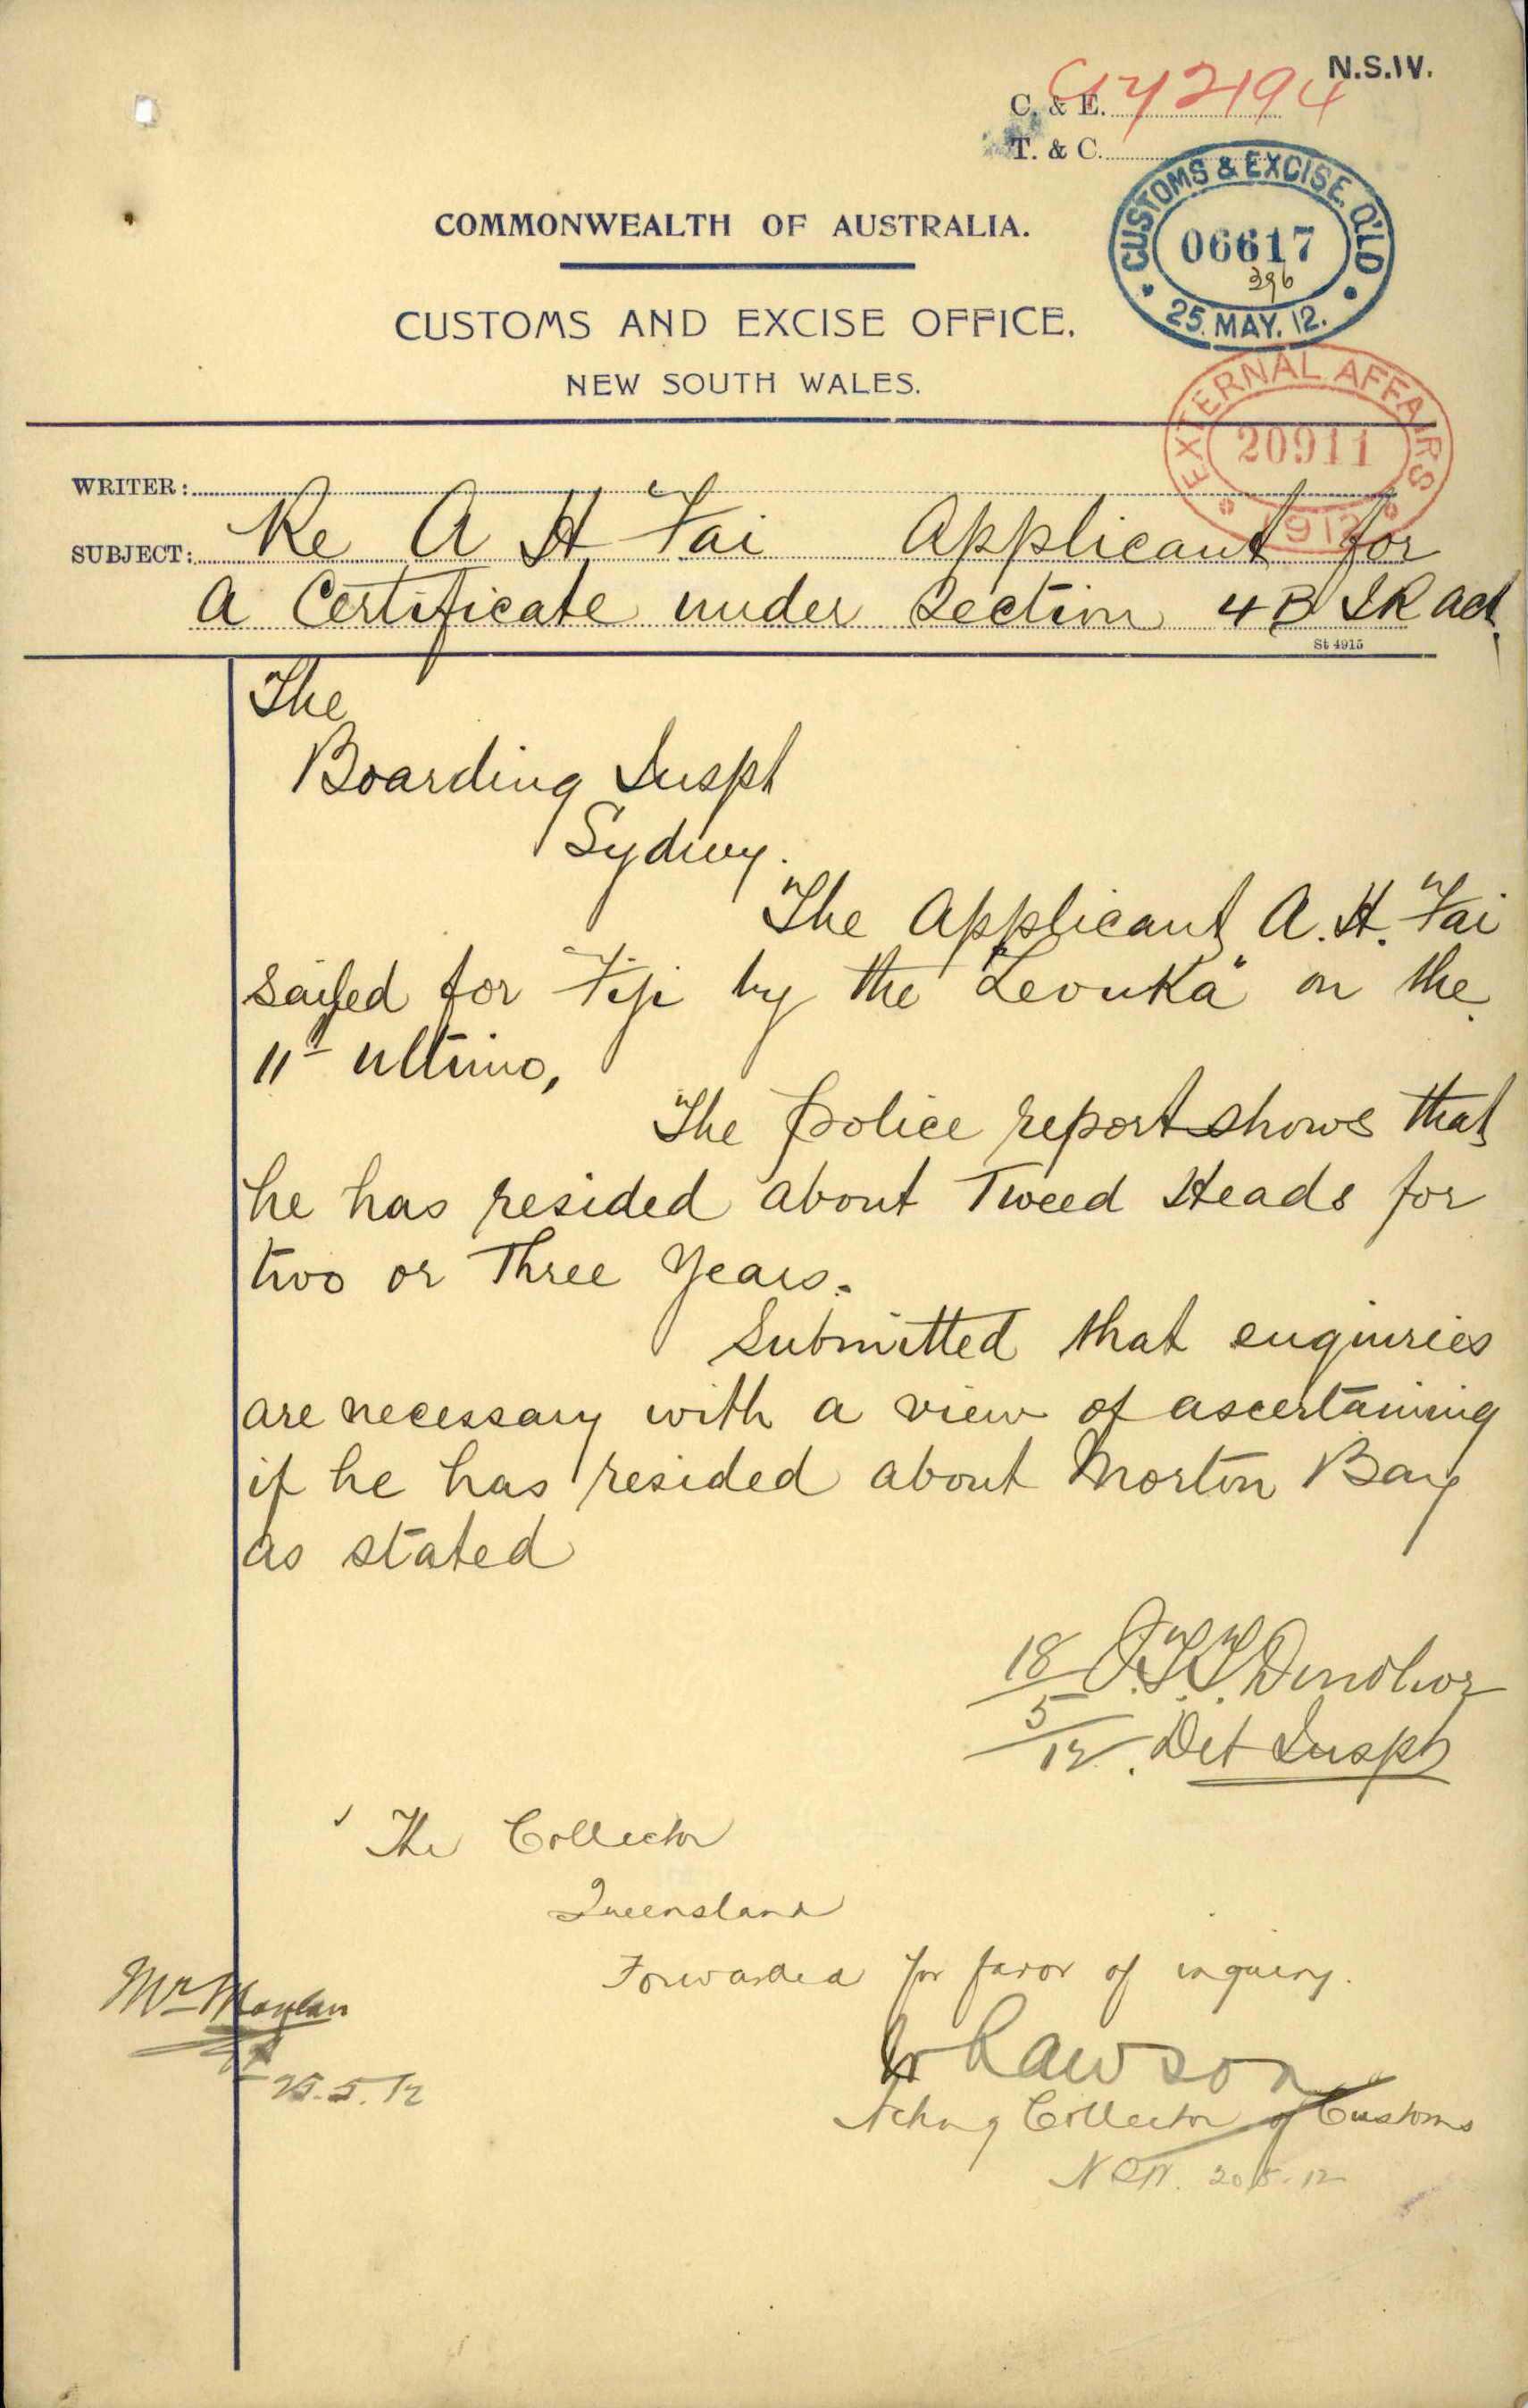 N.S.W.
C. & E. C12/2194
T. & C.
CUSTOMS & EXCISE. Q'LD
06617
396
25. MAY. 12.
COMMONWEALTH OF AUSTRALIA.
CUSTOMS AND EXCISE OFFICE,
NEW SOUTH WALES.
EXTERNAL AFFAIRS
20911
1912
WRITER:
SUBJECT: Re A H Fai Applicant for
a Certificate under Section 4B IR Act
St 4915
The
Boarding Inspr
Sydney.
The Applicant A. H. Fai
sailed for Fiji by the "Levuka" on the
11th ultimo,
The police report shows that
he has resided about Tweed Heads for
two or Three Years.
Submitted that enquiries
are necessary with a view of ascertaining
if he has resided about Morton Bay
as stated
18/5/12. Donohoe
Det Inspr
The Collector
Queensland
Forwarded for favor of inquiry.
Lawson
Acting Collector of Customs
NSW. 20.5.12
Mr
25.5.12